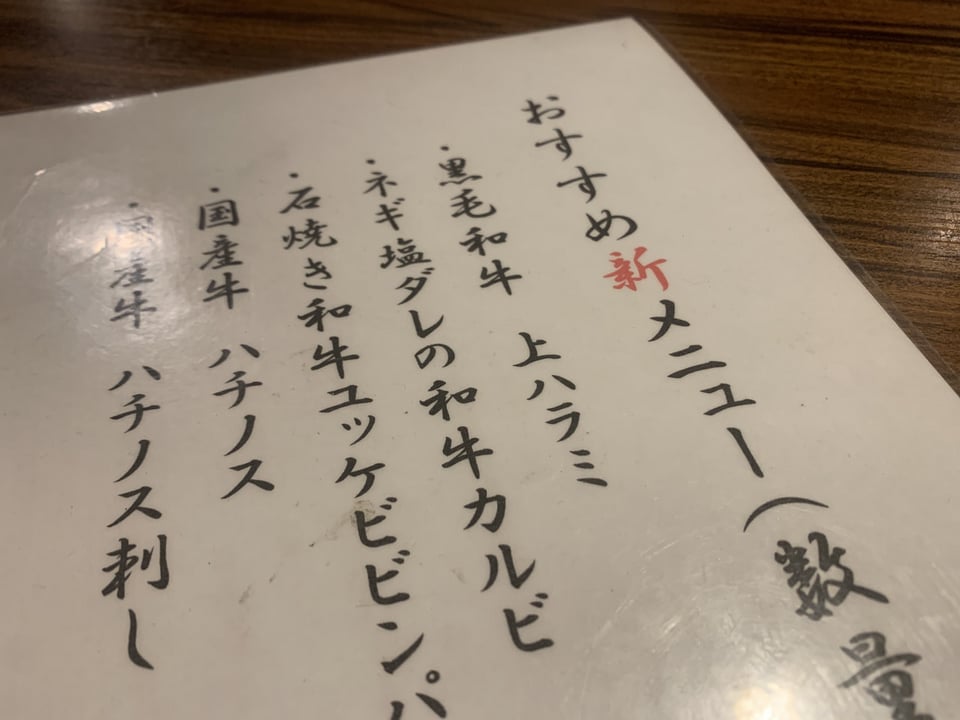 おすすめ新メニュー(数量
・黒毛和牛 上ハラミ
・ネギ塩ダレの和牛カルビ
・石焼き和牛ユッケビビンパ
・国産牛 ハチノス
・国産牛 ハチノス刺し